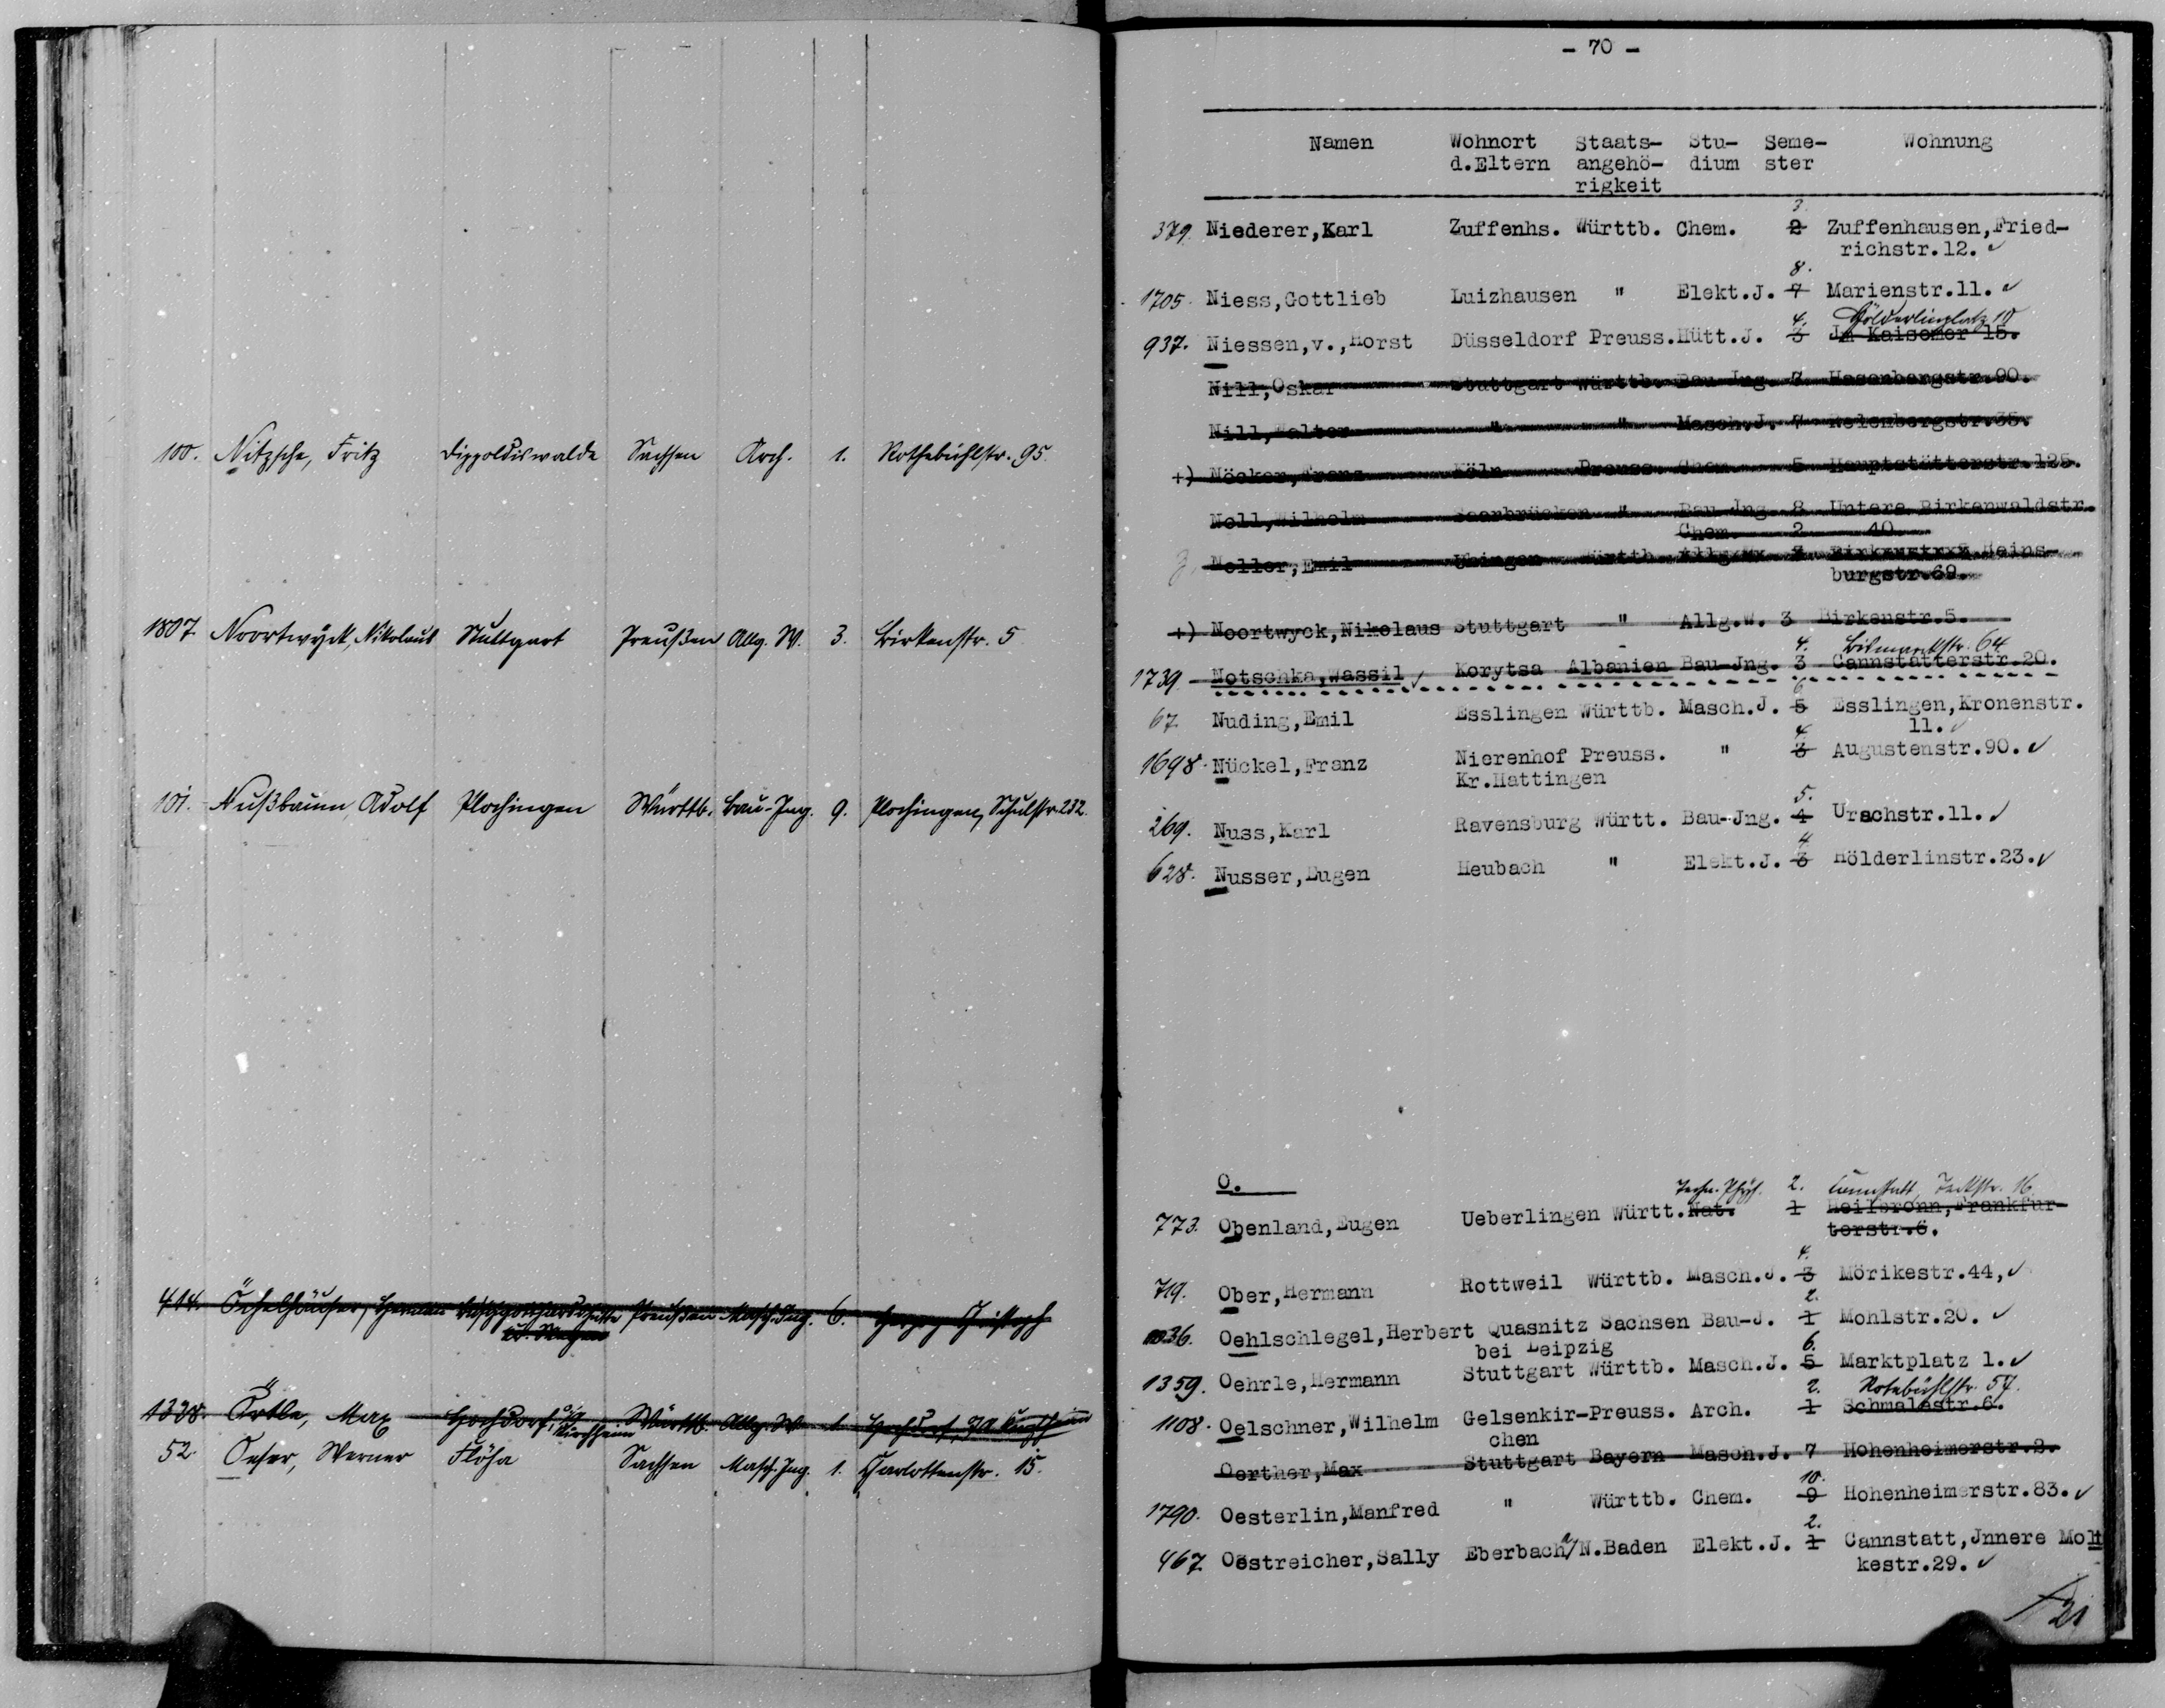 100. Nitzsche, Fritz Dippoldiswalde Sachsen Arch. 1. Rothebühlstr. 95.
1807 Noortwyck, Nikolaus Stuttgart Preußen Allg. W. 3. Birkenstr. 5
101. Nußbaum, Adolf Plochingen Württb. Bau-Jng. 9. Plochingen, Schulstr. 232.
414. Öchelhäuser, Herman Preußen Masch. Jng. 6. Herzog Christoph
1338. Örtle, Max Hochdorf, O/A Kirchheim Württb. Allg. W. 1. Hochdorf, O/A Kirchheim
52. Oeser, Werner Flöha Sachsen Masch. Jng. 1. Charlottenstr. 15.
- 70 -
Namen Wohnort Staats- Stu- Seme- Wohnung
d.Eltern angehö- dium ster
rigkeit
3.
379. Niederer,Karl Zuffenhs. Württb. Chem. 2 Zuffenhausen,Fried-
richstr.12. ✓
8.
1705. Niess,Gottlieb Luizhausen " Elekt.J. 7 Marienstr.11. ✓
4. Hölderlinplatz 10
937. Niessen,v.,Horst Düsseldorf Preuss.Hütt.J. 3 Jm Kaisemer 15.
Nill,Oskar Stuttgart Württb. Bau-Jng. 7 Hasenbergstr.90.
Nill,Walter " " Masch.J. 7 Relenbergstr.35.
+) Nöcker,Franz Köln Preuss. Chem. 5 Hauptstätterstr.125.
Noll,Wilhelm Saarbrücken " Bau-Jng. 8 Untere Birkenwaldstr.
Chem. 2 40
Noller,Emil Uhingen Württb. Heins-
burgstr.69.
+) Noortwyck,Nikolaus Stuttgart " Allg.W. 3 Birkenstr.5.
4. Bismarckstr. 64
1739. Notschka,Wassil ✓ Korytsa Albanien Bau-Jng. 3 Cannstatterstr.20.
6
67. Nuding,Emil Esslingen Württb. Masch.J. 5 Esslingen,Kronenstr.
11. ✓
4.
1698. Nückel,Franz Nierenhof Preuss. " 3 Augustenstr.90. ✓
Kr.Hattingen
5.
269. Nuss,Karl Ravensburg Württ. Bau-Jng. 4 Urachstr.11. ✓
4
628. Nusser,Eugen Heubach " Elekt.J. 3 Hölderlinstr.23. ✓
O.
Techn. Phys. 2. Cannstatt, Teckstr. 16.
773. Obenland,Eugen Ueberlingen Württ.Nat. 1 Heilbronn,Frankfur-
terstr.6.
4.
719. Ober,Hermann Rottweil Württb. Masch.J. 3 Mörikestr.44, ✓
2.
1036. Oehlschlegel,Herbert Quasnitz Sachsen Bau-J. 1 Mohlstr.20. ✓
bei Leipzig
6.
1359. Oehrle,Hermann Stuttgart Württb. Masch.J. 5 Marktplatz 1. ✓
2. Rotebühlstr. 57.
1108. Oelschner,Wilhelm Gelsenkir-Preuss. Arch. 1 Schmalestr.6.
chen
Oerther,Max Stuttgart Bayern Masch.J. 7 Hohenheimerstr.2.
10.
1790. Oesterlin,Manfred " Württb. Chem. 9 Hohenheimerstr.83. ✓
2.
467. Oestreicher,Sally Eberbach a/N.Baden Elekt.J. 1 Cannstatt,Jnnere Molt
kestr.29. ✓
21